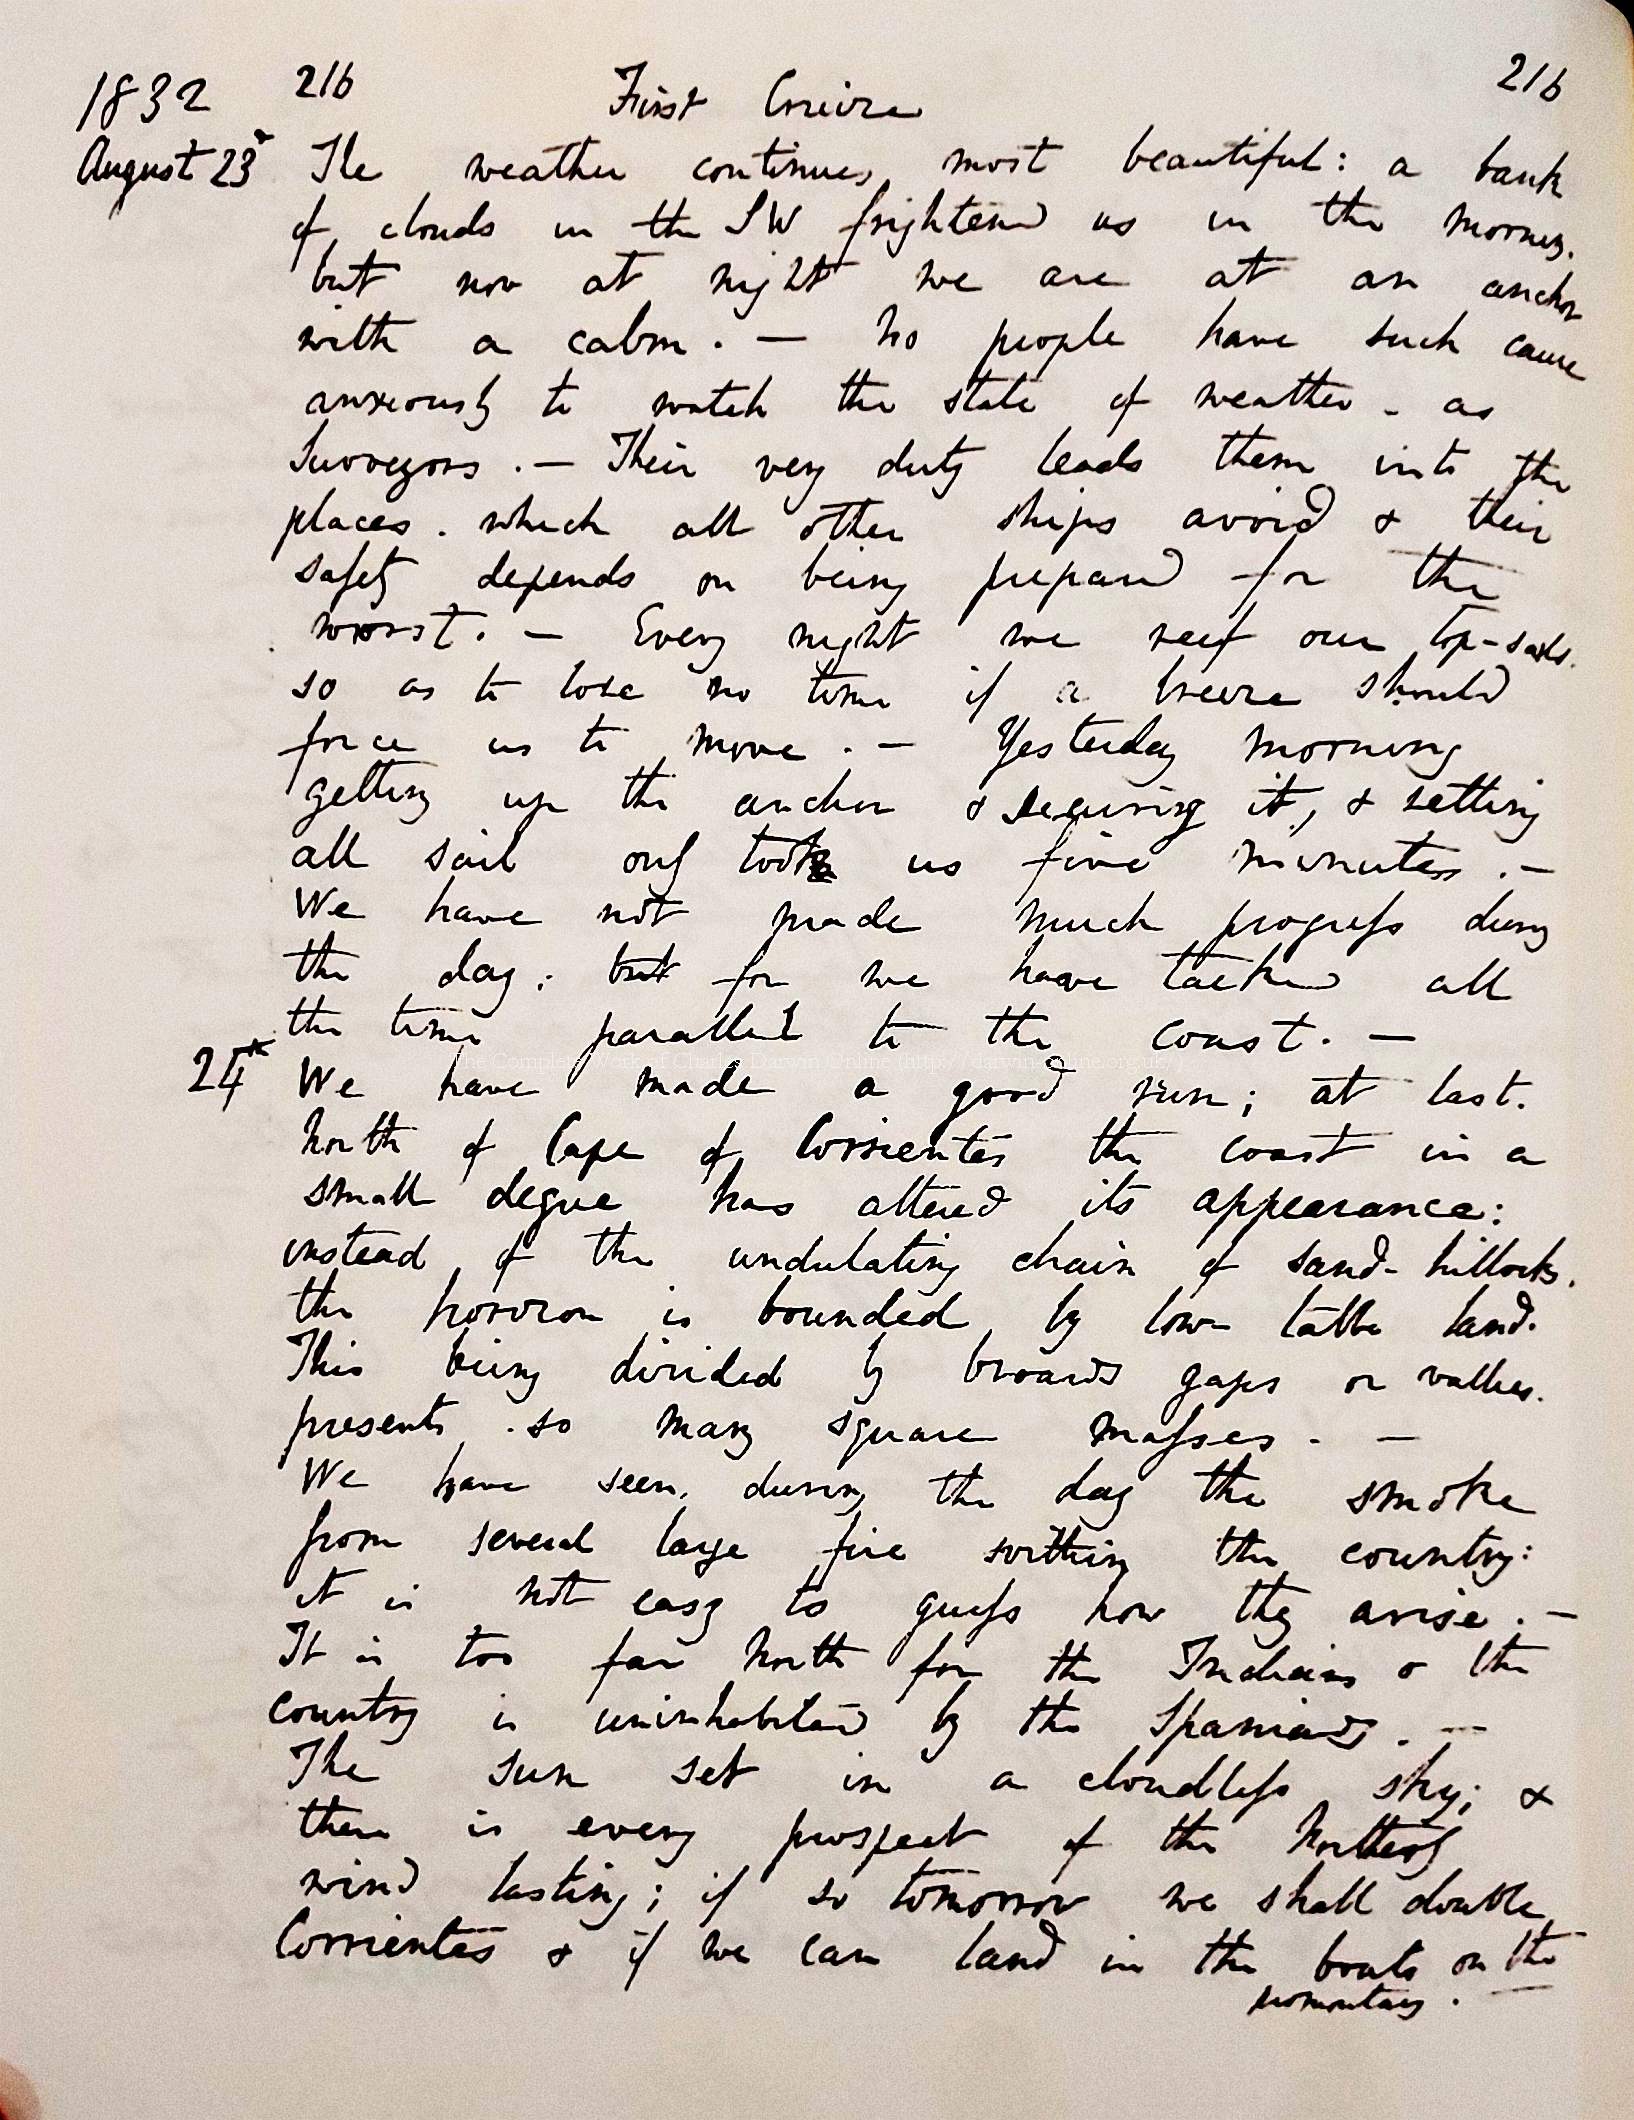 1832 216 First Cruize 216
August 23d The weather continues most beautiful: a bank
of clouds in the SW frightened us in the morning.
but now at night we are at an anchor
with a calm. — No people have such cause
anxiously to watch the state of weather - as
Surveyors. — Their very duty leads them into the
places. which all other ships avoid & their
safety depends on being prepared for the
worst. — Every night we reef our top-sails.
so as to lose no time if a breeze should
force us to move. — Yesterday morning
getting up the anchor & securing it, & setting
all sail only took us five minutes. —
We have not made much progress during
the day; but for we have tacked all
the time parallel to the coast. —
24th We have made a good run; at last.
North of Cape of Corrientes the coast in a
small degree has altered its appearance:
instead of the undulating chain of sand-hillocks.
the horizon is bounded by low table land.
This being divided by broards gaps or vallies.
presents. so many square masses. —
We have seen, during the day the smoke
from several large fire within the country:
it is not easy to guess how they arise. —
It is too far North for the Indians & the
country is uninhabited by the Spaniards. —
The sun set in a cloudless sky; &
there is every prospect of the Northerly
wind lasting; if so tomorrow we shall double
Corrientes & if we can land in the boats on the
promontary. —